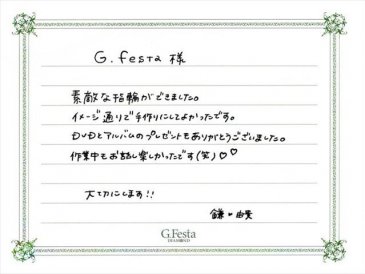 G.festa 様
素敵な指輪ができました。
イメージ通りで手作りにしてよかったです。
DVDとアルバムのプレゼントもありがとうございました。
作業中もお話し楽しかったです(笑)♡♡
大切にします!!
G.Festa
DIAMOND